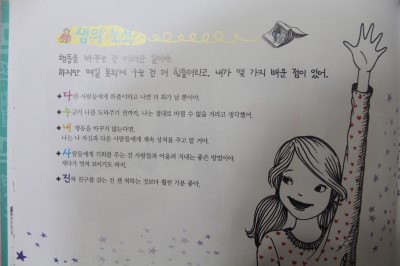 샘의 노트
행동을 바꾸는 건 어려운 일이야.
하지만 매일 못되게 구는 건 더 힘들더라고. 내가 몇 가지 배운 점이 있어.
다른 사람들에게 화풀이하고 나면 더 화가 날 뿐이야.
누군가 나를 도와주기 전까지, 나는 절대로 바뀔 수 없을 거라고 생각했어.
내 행동을 바꾸지 않는다면,
나는 나 자신과 다른 사람들에게 계속 상처를 주고 말 거야.
사람들에게 기회를 주는 건 사람들과 어울려 지내는 좋은 방법이야.
게다가 멋져 보이기도 하지.
진짜 친구를 갖는 건 센 척하는 것보다 훨씬 기분 좋아.